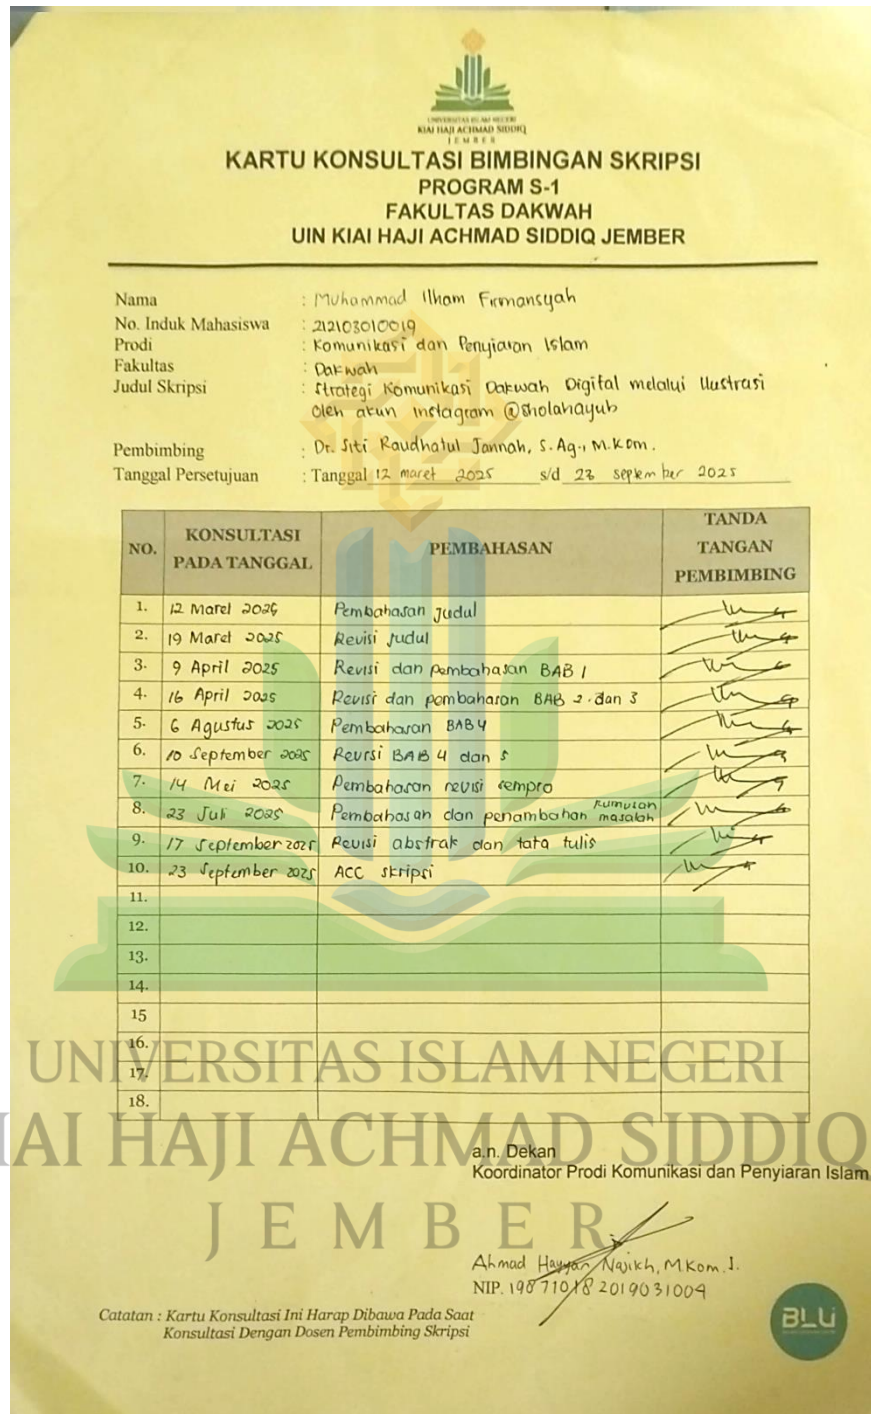 UNIVERSITAS ISLAM NEGERI
KIAI HAJI ACHMAD SIDDIQ
JEMBER
KARTU KONSULTASI BIMBINGAN SKRIPSI
PROGRAM S-1
FAKULTAS DAKWAH
UIN KIAI HAJI ACHMAD SIDDIQ JEMBER
Nama : Muhammad Ilham Firmansyah
No. Induk Mahasiswa : 212103010019
Prodi : Komunikasi dan Penyiaran Islam
Fakultas : Dakwah
Judul Skripsi : Strategi Komunikasi Dakwah Digital melalui Ilustrasi
Oleh akun Instagram @sholahayub
Pembimbing : Dr. Siti Raudhatul Jannah, S.Ag., M.Kom.
Tanggal Persetujuan : Tanggal 12 maret 2025 s/d 23 september 2025
NO. KONSULTASI PADA TANGGAL PEMBAHASAN TANDA TANGAN PEMBIMBING
1. 12 Maret 2025 Pembahasan Judul
2. 19 Maret 2025 Revisi Judul
3. 9 April 2025 Revisi dan pembahasan BAB 1
4. 16 April 2025 Revisi dan pembahasan BAB 2 dan 3
5. 6 Agustus 2025 Pembahasan BAB 4
6. 10 September 2025 Revisi BAB 4 dan 5
7. 14 Mei 2025 Pembahasan revisi sempro
8. 23 Juli 2025 Pembahasan dan penambahan rumusan masalah
9. 17 September 2025 Revisi abstrak dan tata tulis
10. 23 September 2025 ACC skripsi
11.
12.
13.
14.
15
16.
17.
18.
UNIVERSITAS ISLAM NEGERI
KIAI HAJI ACHMAD SIDDIQ
JEMBER
a.n. Dekan
Koordinator Prodi Komunikasi dan Penyiaran Islam
Ahmad Hayyan Najikh, M.Kom.I.
NIP. 198710182019031004
Catatan : Kartu Konsultasi Ini Harap Dibawa Pada Saat
Konsultasi Dengan Dosen Pembimbing Skripsi
BLU